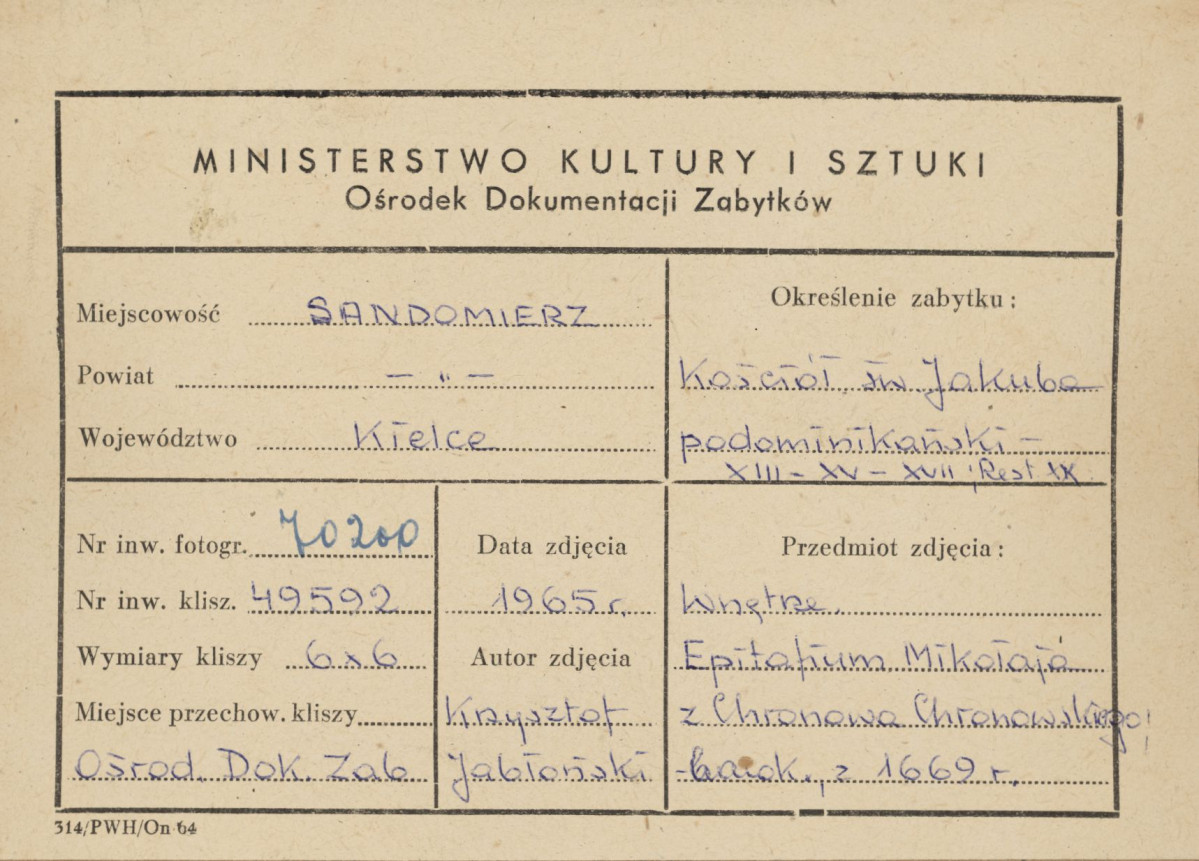 MINISTERSTWO KULTURY I SZTUKI
Ośrodek Dokumentacji Zabytków
Miejscowość SANDOMIERZ
Powiat — „ —
Województwo Kielce
Określenie zabytku:
Kościół św Jakuba
podominikański –
XIII – XV – XVII; Rest XX
Nr inw. fotogr. 70200
Nr inw. klisz. 49592
Wymiary kliszy 6x6
Miejsce przechow. kliszy
Ośrod. Dok. Zab
Data zdjęcia
1965 r.
Autor zdjęcia
Krzysztof
Jabłoński
Przedmiot zdjęcia:
Wnętrze.
Epitafium Mikołaja
z Chronowa Chronowskiego;
barok., z 1669 r.
314/PWH/On 64